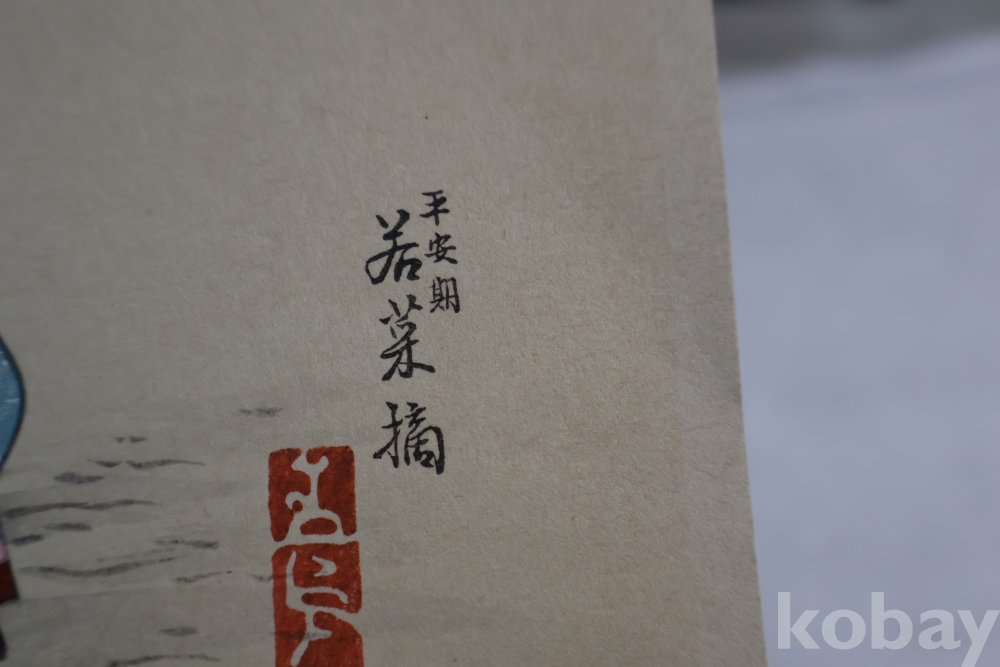 平安期
若菜摘
kobay